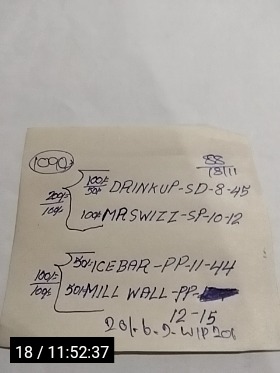 1090
SS
18/11
100/-
50/- DRINKUP-SD-8-45
200/-
10/- 100/- MRSWIZZ-SP-10-12
50/- ICEBAR-PP-11-44
100/-
100/- 50/- MILL WALL-PP-
12-15
18 / 11:52:37